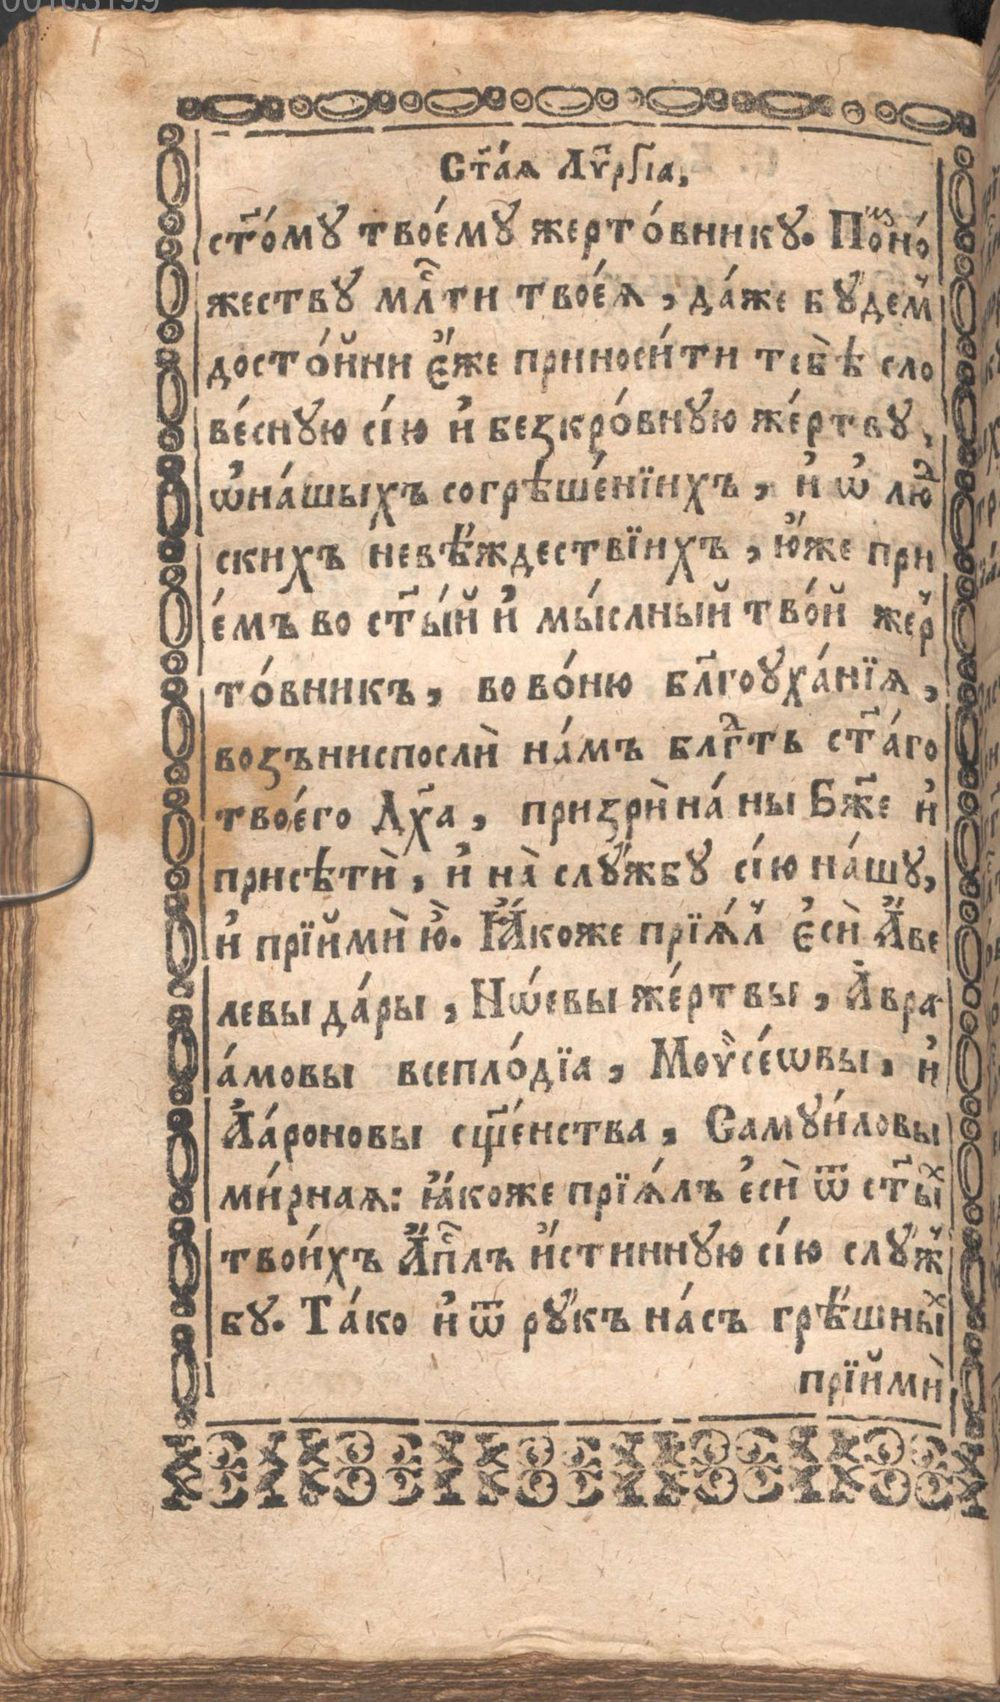 00103199
Ст҃а́ѧ Лѵ҃ргіа,
ст҃о́мꙋ твоемꙋ̀ жерто́вникꙋ. Помно́
жествꙋ мл҃ти твоеѧ̀, да́же бꙋдем
досто́йни є҆́же приноси́ти тебѣ̀ сло
ве́снꙋю сі́ю и҆ безкро́внꙋю же́ртвꙋ,
ѡ҆на́шыхъ согрѣше́нїихъ, и҆ ѡ҆ люд
скихъ невѣ́ждествїихъ, ю҆́же при
е́мъ во ст҃ы́й и҆ мы́слный тво́й жер
то́вникъ, во во́ню бл҃гоꙋха́нїѧ,
возъниспослѝ на́мъ бл҃гть ст҃а́го
твое́го Дх҃а, призрѝ на́ ны Бж҃е и҆
присѣтѝ, и҆ нà слꙋ́жбꙋ сі́ю на́шꙋ,
и҆ прїймѝ ю҆̀. Ꙗ҆́коже прїѧ́л є҆сѝ А҆́ве
левы да́ры, Нѡ́евы же́ртвы, А҆вра
а́мовы всепло́дїа, Моѵ̈се́ѡвы, и҆
А҆а́роновы сщ҃е́нства, Самꙋи́ловы
ми́рнаѧ: ꙗ҆́коже прїѧ́лъ є҆сѝ ѿ ст҃ых
твои́хъ А҆п҃лъ и҆́стиннꙋю сі́ю слꙋж
бꙋ. Та́ко и҆ ѿ рꙋ́къ на́съ грѣ́шных
прїймѝ